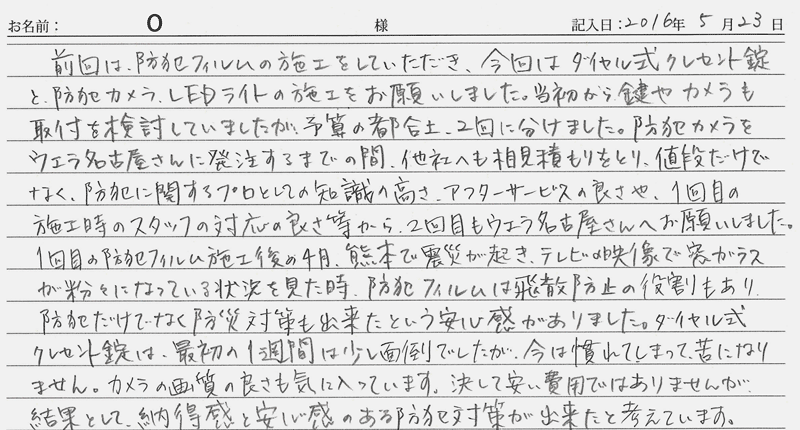 お名前： O 様 記入日：2016年 5月23日
前回は、防犯フィルムの施工をしていただき、今回はダイヤル式クレセント錠
と、防犯カメラ、LEDライトの施工をお願いしました。当初から鍵やカメラも
取付を検討していましたが、予算の都合上、2回に分けました。防犯カメラを
ウエラ名古屋さんに発注するまでの間、他社へも相見積もりをとり、値段だけで
なく、防犯に関するプロとしての知識の高さ、アフターサービスの良さや、1回目の
施工時のスタッフの対応の良さ等から、2回目もウエラ名古屋さんへお願いしました。
1回目の防犯フィルム施工後の4月、熊本で震災が起き、テレビの映像で窓ガラス
が粉々になっている状況を見た時、防犯フィルムは飛散防止の役割もあり、
防犯だけでなく防災対策も出来たという安心感がありました。ダイヤル式
クレセント錠は、最初の1週間は少し面倒でしたが、今は慣れてしまって、苦になり
ません。カメラの画質の良さも気に入っています。決して安い費用ではありませんが、
結果として、納得感と安心感のある防犯対策が出来たと考えています。